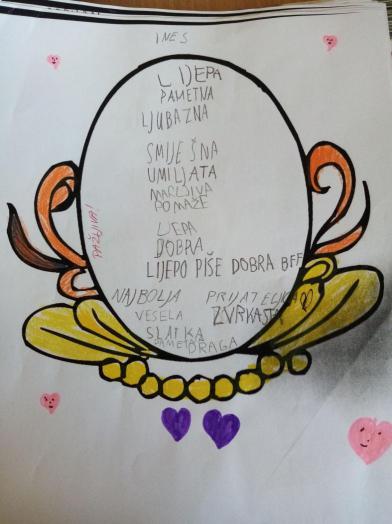 INES
LIJEPA
PAMETNA
LJUBAZNA
SMIJEŠNA
UMILJATA
MAZLJIVA
POMAŽE
LJEPA
DOBRA
LIJEPO PIŠE DOBRA BFF
NAJBOLJA PRIJATELJICA
VESELA ZVRKASTA
SLATKA
PAMETNA
DRAGA